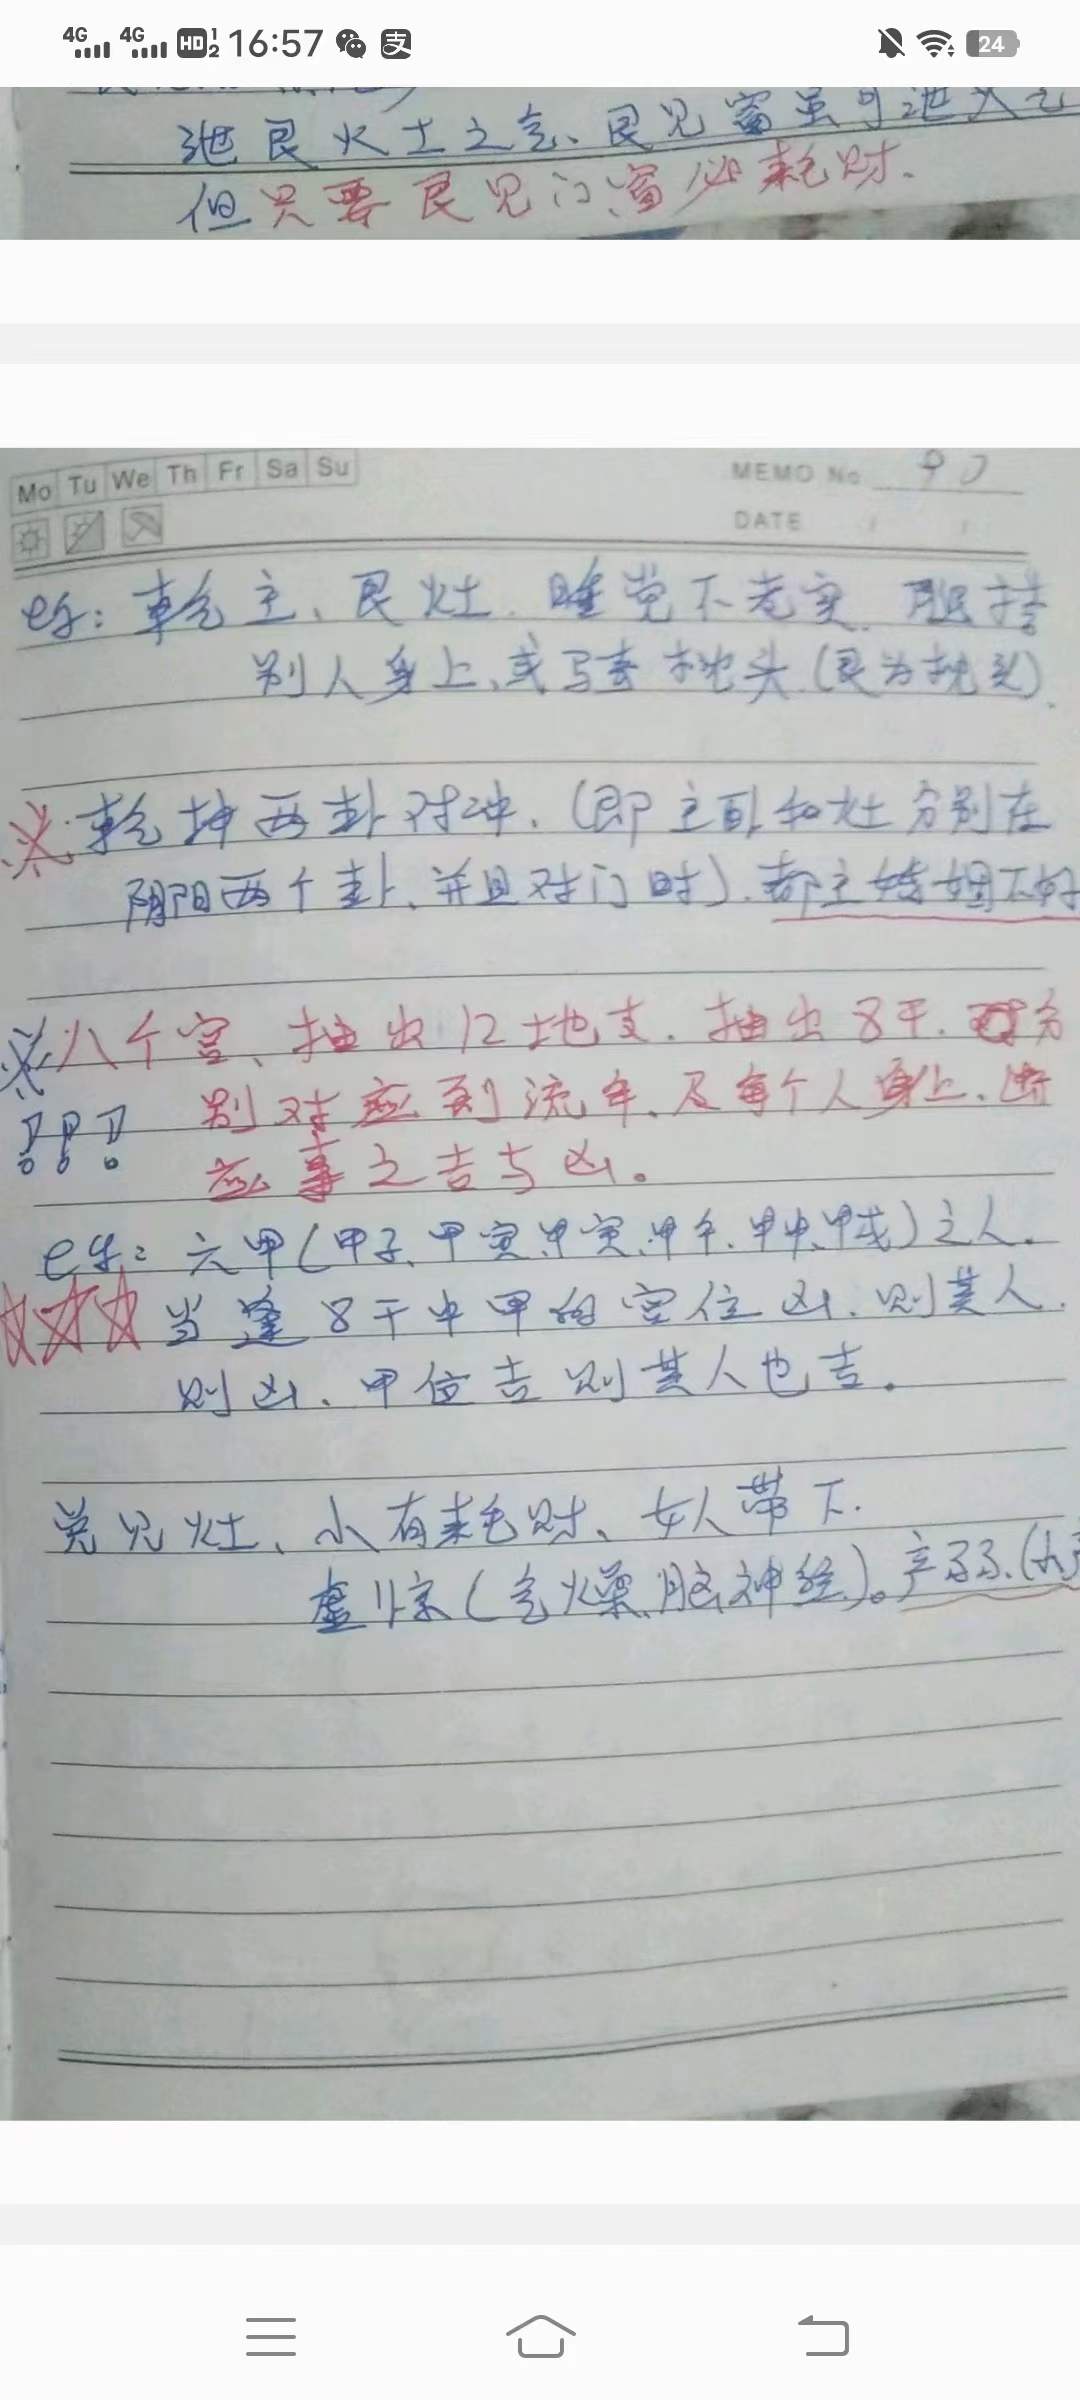 4G 4G HD 1 2 16:57 支 24
泄艮火土之气、艮见窗虽可泄火气
但只要艮见门、窗必耗财、
Mo Tu We Th Fr Sa Su
MEMO No 90
DATE / /
eg: 乾主、艮灶、睡觉不老实、腿搭
别人身上、或骑枕头(艮为枕头)、
乾坤两卦对冲、(即主卧和灶分别在
阴阳两个卦、并且对门时)、都主婚姻不好
八个宫、抽出12地支、抽出8干、分
别对应到流年、及每个人身上、断
!!! 应事之吉与凶。
eg: 六甲(甲子、甲寅、甲寅、甲午、甲申、甲戌)之人、
当逢8干中甲的宫位凶、则其人
则凶、甲位吉则其人也吉。
兑见灶、小有耗财、女人带下、
虚惊(气燥、脑神经)。产弱、(小产